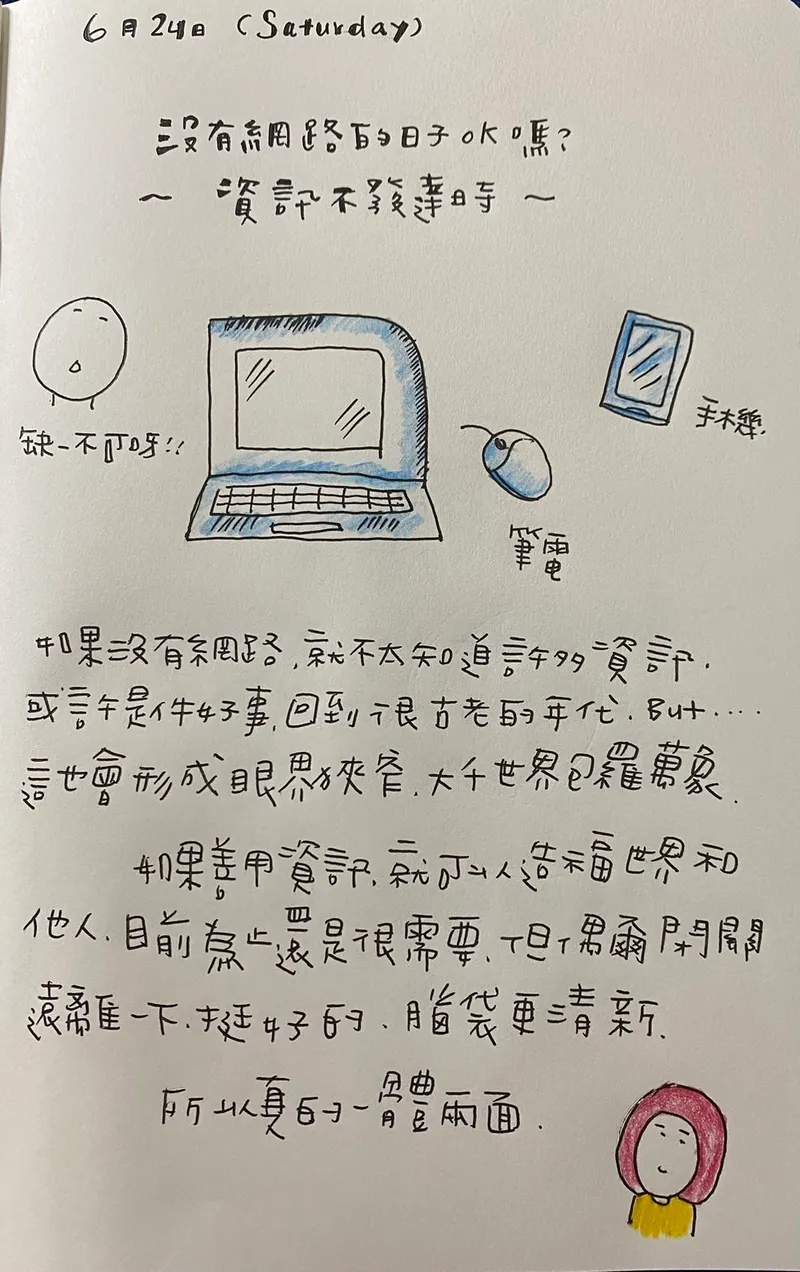 6月24日 (Saturday)
沒有網路的日子OK嗎?
~ 資訊不發達時 ~
缺一不可呀!!
手機.
筆電
如果沒有網路,就不太知道許多資訊.
或許是件好事,回到很古老的年代.But....
這也會形成眼界狹窄,大千世界包羅萬象.
如果善用資訊,就可以造福世界和
他人.目前為止還是很需要,但偶爾閉關
遠離一下,挺好的、腦袋更清新.
所以真的一體兩面.